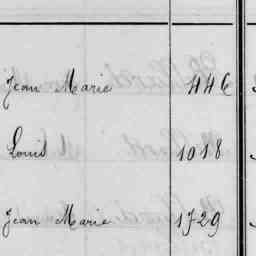 Jean Marie 446
Louis 1018
Jean Marie 1729